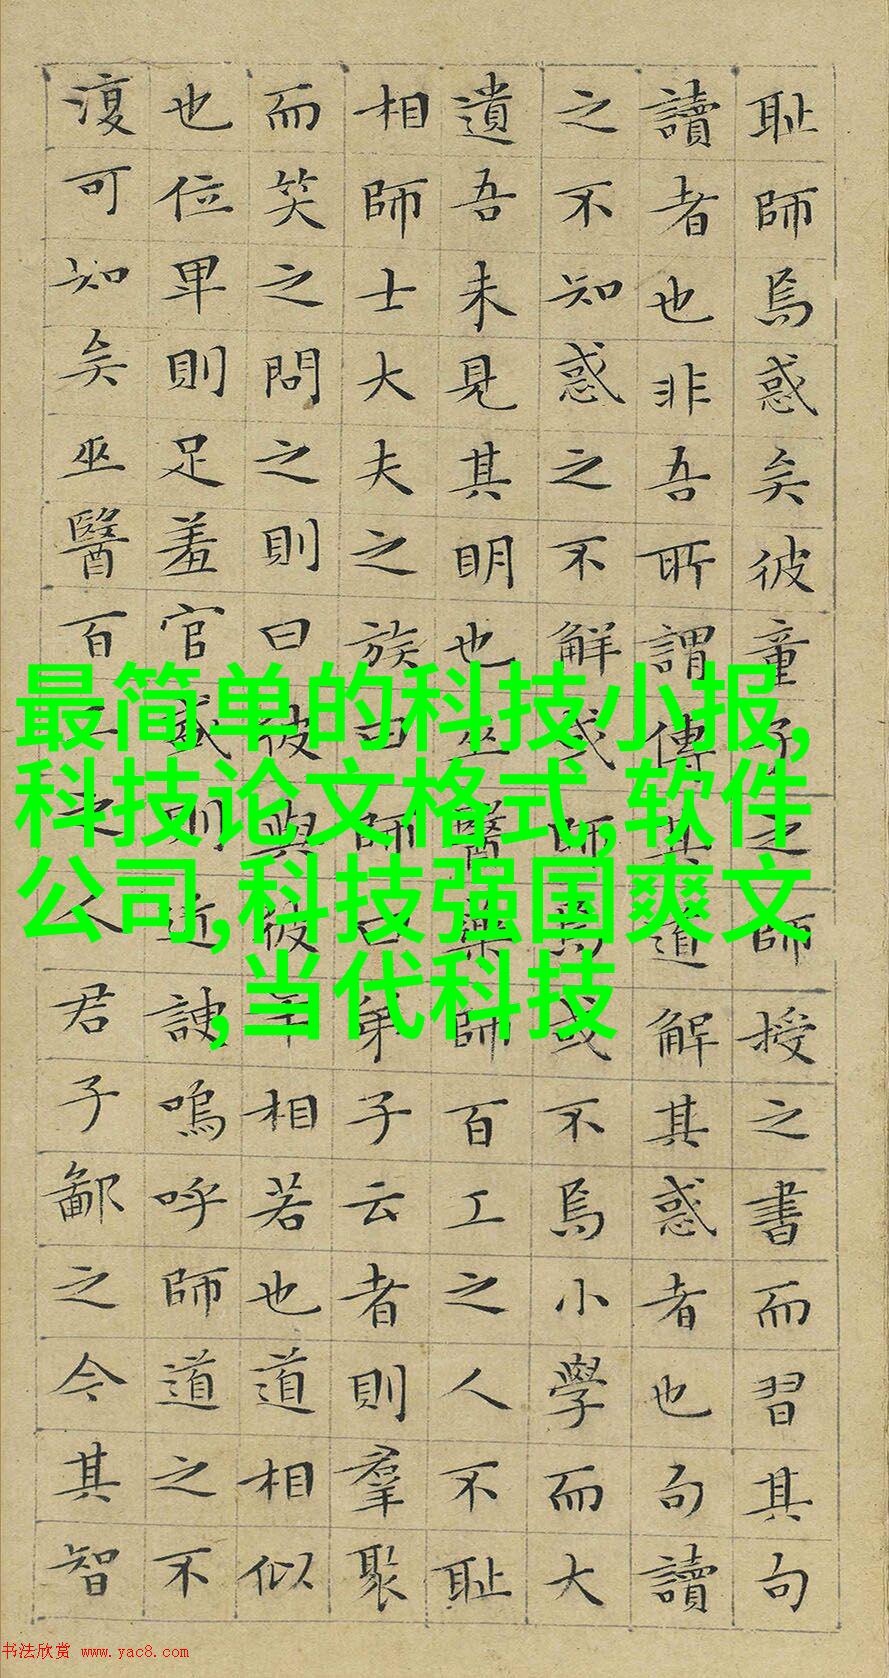 耻師焉惑矣彼童子之師授之書而習其句
讀者也非吾所謂傳其道解其惑者也句讀
之不知惑之不解或師焉或不焉小學而大
遺吾未見其明也巫醫藥師百工之人不耻
相師士大夫之族曰師曰弟子云者則羣聚
而笑之問之則曰彼與彼年相若也道相似
也位卑則足羞官盛則近諛嗚呼師道之不
復可知矣巫醫百工之人君子鄙之今其智
最简单的科技小报,
科技论文格式,软件
公司,科技强国爽文
,当代科技
书法欣赏 www.yac8.com